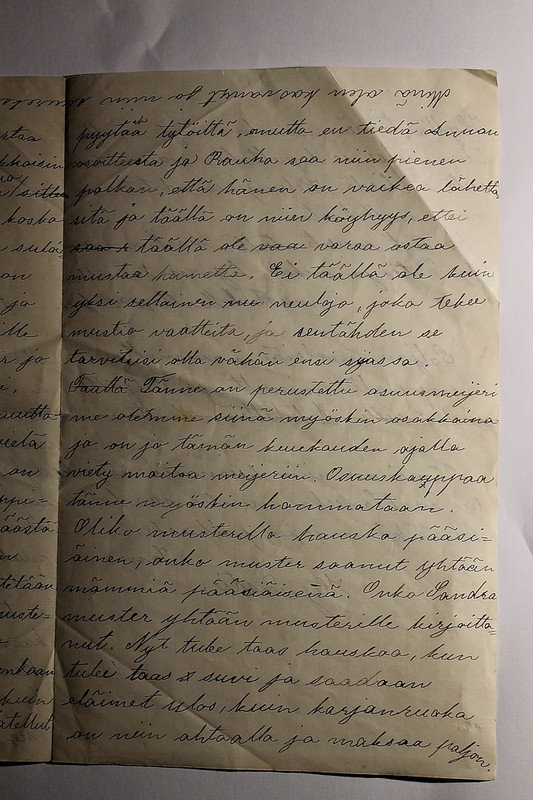 Minä olen kasvanut ja niin suureksi
pyytää tytöiltä, mutta en tiedä Annan
osoitteesta ja Rauha saa niin pienen
palkan, että hänen on vaikea lähettää
sitä ja täällä on niin köyhyys, ettei
täällä ole vaa varaa ostaa
mustaa hametta. Ei täällä ole kuin
yksi sellainen neuloja, joka tekee
mustia vaatteita, ja sentähden se
tarvitsisi olla vähän ensi sijassa.
Täällä Tänne on perustettu osuusmeijeri
me olemme siinä myöskin osakkaina
ja on jo tämän kuukauden ajalla
viety maitoa meijeriin. Osuuskauppaa
tänne myöskin hommataan.
Oliko musterilla hauska pääsi-
äinen, onko muster saanut yhtään
mämmiä pääsiäisenä. Onko Sandra
muster yhtään musterille kirjoitta-
nut. Nyt tulee taas hauskaa, kun
tulee taas suvi ja saadaan
eläimet ulos, kuin karjanruoka
on niin ahtaalla ja maksaa paljon.